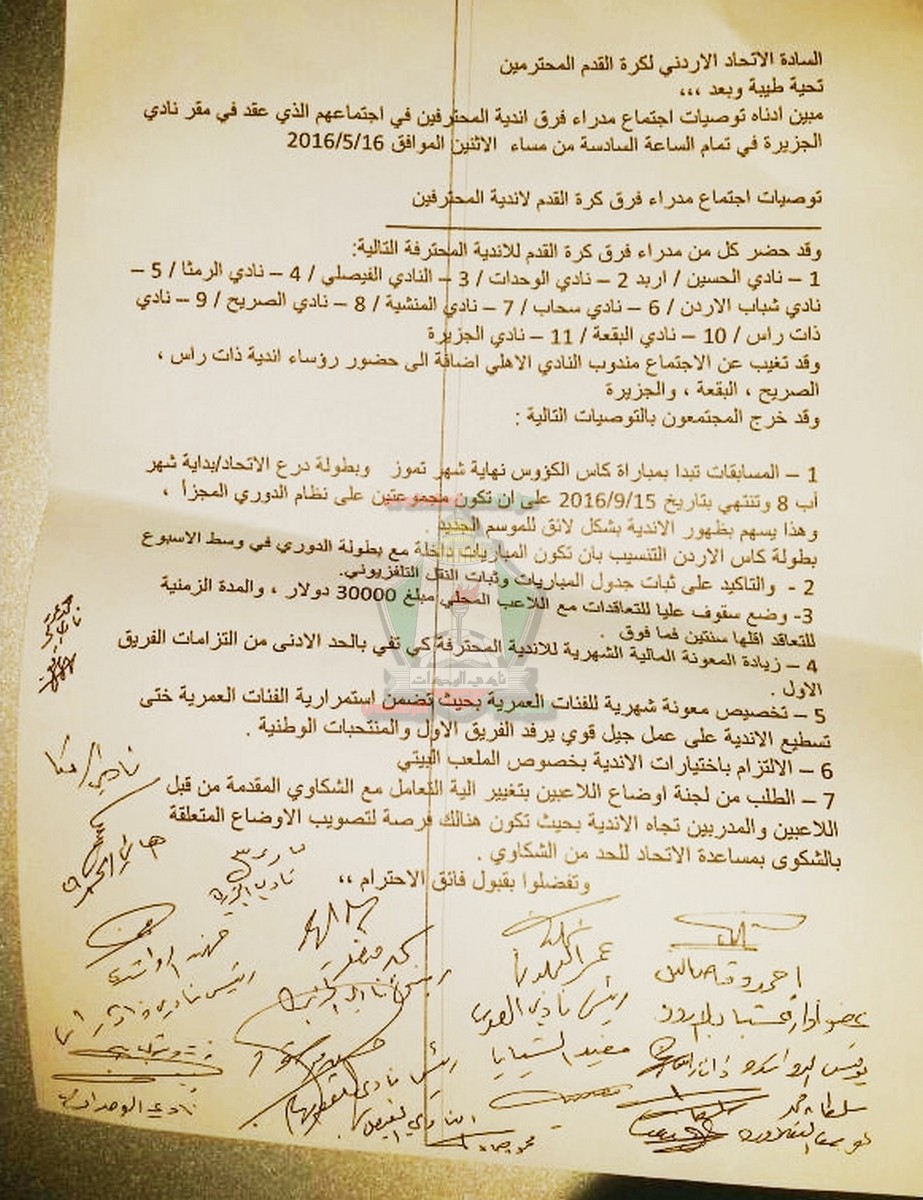 السادة الاتحاد الاردني لكرة القدم المحترمين
تحية طيبة وبعد ،،،
مبين ادناه توصيات اجتماع مدراء فرق اندية المحترفين في اجتماعهم الذي عقد في مقر نادي
الجزيرة في تمام الساعة السادسة من مساء الاثنين الموافق 2016/5/16
توصيات اجتماع مدراء فرق كرة القدم لاندية المحترفين
وقد حضر كل من مدراء فرق كرة القدم للاندية المحترفة التالية:
1 – نادي الحسين / اربد 2 – نادي الوحدات / 3 – النادي الفيصلي / 4 – نادي الرمثا / 5 –
نادي شباب الاردن / 6 – نادي سحاب / 7 – نادي المنشية / 8 – نادي الصريح / 9 – نادي
ذات راس / 10 – نادي البقعة / 11 – نادي الجزيرة
وقد تغيب عن الاجتماع مندوب النادي الاهلي اضافة الى حضور رؤساء اندية ذات راس ،
الصريح ، البقعة ، والجزيرة
وقد خرج المجتمعون بالتوصيات التالية :
1 – المسابقات تبدا بمباراة كاس الكؤوس نهاية شهر تموز وبطولة درع الاتحاد/بداية شهر
اب 8 وتنتهي بتاريخ 2016/9/15 على ان تكون مجموعتين على نظام الدوري المجزأ ،
وهذا يسهم بظهور الاندية بشكل لائق للموسم الجديد .
بطولة كاس الاردن التنسيب بان تكون المباريات داخلة مع بطولة الدوري في وسط الاسبوع
2 - والتاكيد على ثبات جدول المباريات وثبات النقل التلفزيوني.
3- وضع سقوف عليا للتعاقدات مع اللاعب المحلي مبلغ 30000 دولار ، والمدة الزمنية
للتعاقد اقلها سنتين فما فوق .
4 – زيادة المعونة المالية الشهرية للاندية المحترفة كي تفي بالحد الادنى من التزامات الفريق
الاول .
5 – تخصيص معونة شهرية للفئات العمرية بحيث تضمن استمرارية الفئات العمرية حتى
تسطيع الاندية على عمل جيل قوي يرفد الفريق الاول والمنتحبات الوطنية .
6 – الالتزام باختيارات الاندية بخصوص الملعب البيتي
7 – الطلب من لجنة اوضاع اللاعبين بتغيير الية التعامل مع الشكاوي المقدمة من قبل
اللاعبين والمدربين تجاه الاندية بحيث تكون هنالك فرصة لتصويب الاوضاع المتعلقة
بالشكوى بمساعدة الاتحاد للحد من الشكاوي .
وتفضلوا بقبول فائق الاحترام ،،
نادي الرمثا
نادي الوحدات
نادي الوحدات